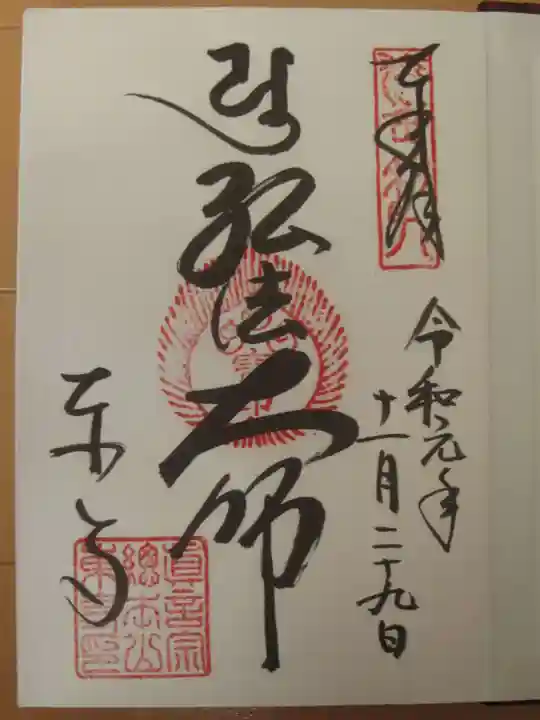 奉拝
令和元年
十一月二十九日
遍弘法大師
東寺
真言宗
総本山
東寺印